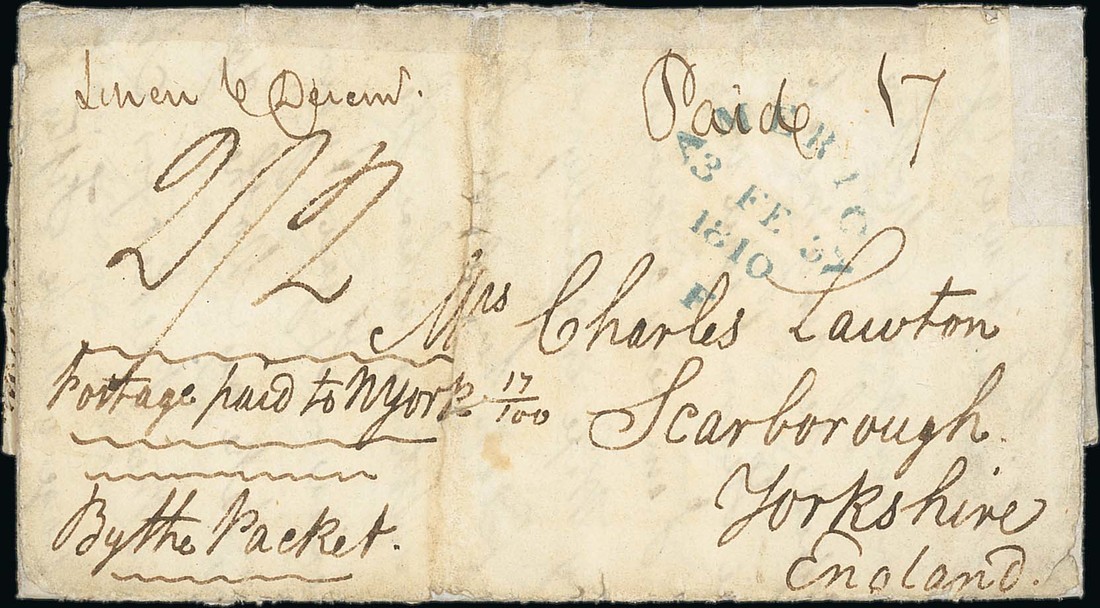 Paid 17
2/2
AMERICA
FE
1810
F
Mrs Charles Lawton
Scarborough.
Yorkshire
England.
Postage paid to NYork 17/100
By the Packet.